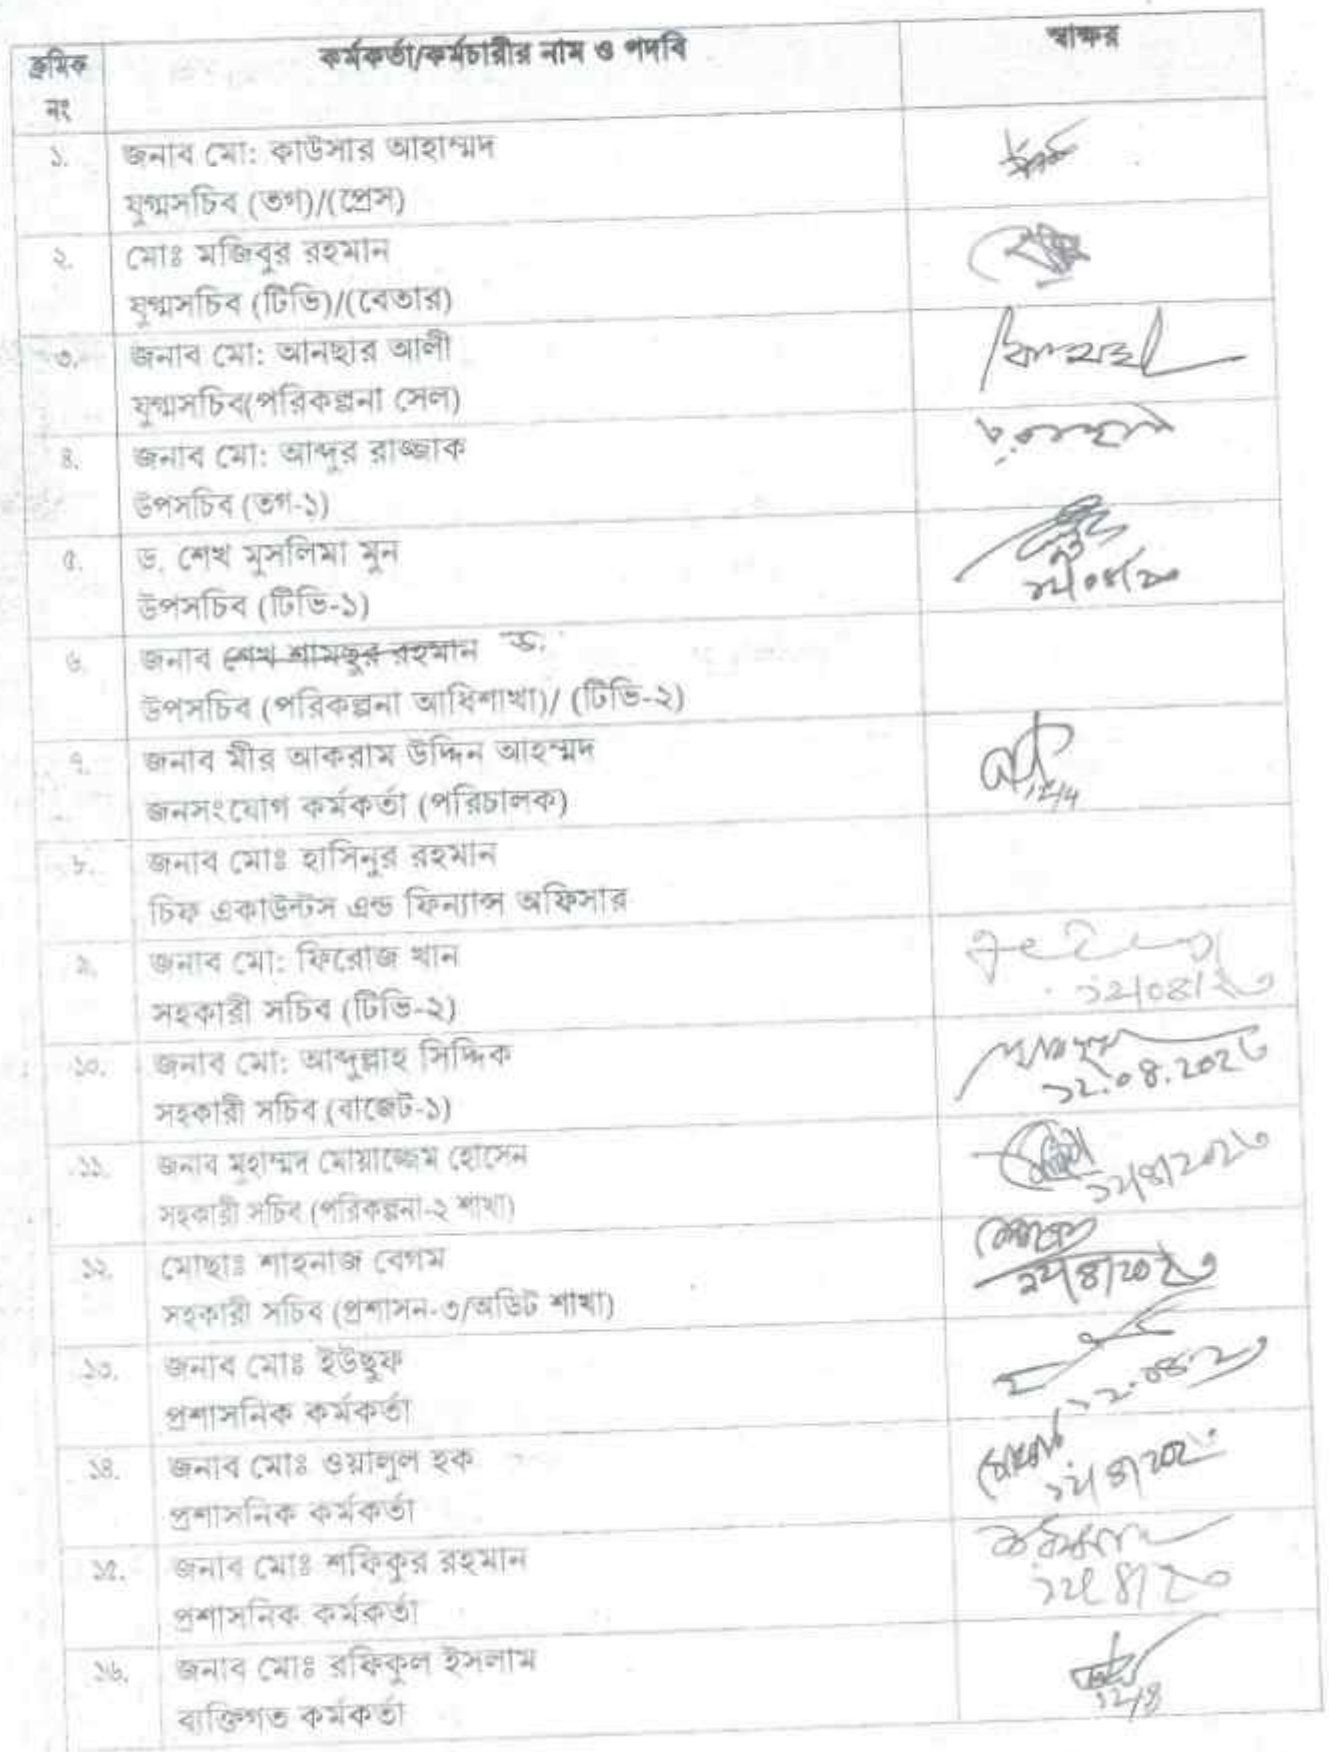 ক্রমিক নং কর্মকর্তা/কর্মচারীর নাম ও পদবি স্বাক্ষর
১. জনাব মো: কাউসার আহাম্মদ
যুগ্মসচিব (তগ)/(প্রেস)
২. মোঃ মজিবুর রহমান
যুগ্মসচিব (টিভি)/(বেতার)
৩. জনাব মো: আনছার আলী
যুগ্মসচিব(পরিকল্পনা সেল)
৪. জনাব মো: আব্দুর রাজ্জাক
উপসচিব (তগ-১)
৫. ড. শেখ মুসলিমা মুন
উপসচিব (টিভি-১)
১২/০৪/২৩
৬. জনাব শেখ শামছুর রহমান ড.
উপসচিব (পরিকল্পনা আধিশাখা)/ (টিভি-২)
৭. জনাব মীর আকরাম উদ্দিন আহম্মদ
জনসংযোগ কর্মকর্তা (পরিচালক)
12/4
৮. জনাব মোঃ হাসিনুর রহমান
চিফ একাউন্টস এন্ড ফিন্যান্স অফিসার
৯. জনাব মো: ফিরোজ খান
সহকারী সচিব (টিভি-২) ১২/০৪/২৩
১০. জনাব মো: আব্দুল্লাহ সিদ্দিক
সহকারী সচিব (বাজেট-১) ১২.০৪.২০২৩
১১. জনাব মুহাম্মদ মোয়াজ্জেম হোসেন
সহকারী সচিব (পরিকল্পনা-২ শাখা) ১২/৪/২০২৩
১২. মোছাঃ শাহনাজ বেগম
সহকারী সচিব (প্রশাসন-৩/অডিট শাখা) ১২/৪/২০২৩
১৩. জনাব মোঃ ইউছুফ
প্রশাসনিক কর্মকর্তা ১২.০৪.২৩
১৪. জনাব মোঃ ওয়ালুল হক
প্রশাসনিক কর্মকর্তা ১২/৪/২০২৩
১৫. জনাব মোঃ শফিকুর রহমান
প্রশাসনিক কর্মকর্তা ১২/৪/২৩
১৬. জনাব মোঃ রফিকুল ইসলাম
ব্যক্তিগত কর্মকর্তা ১২/৪